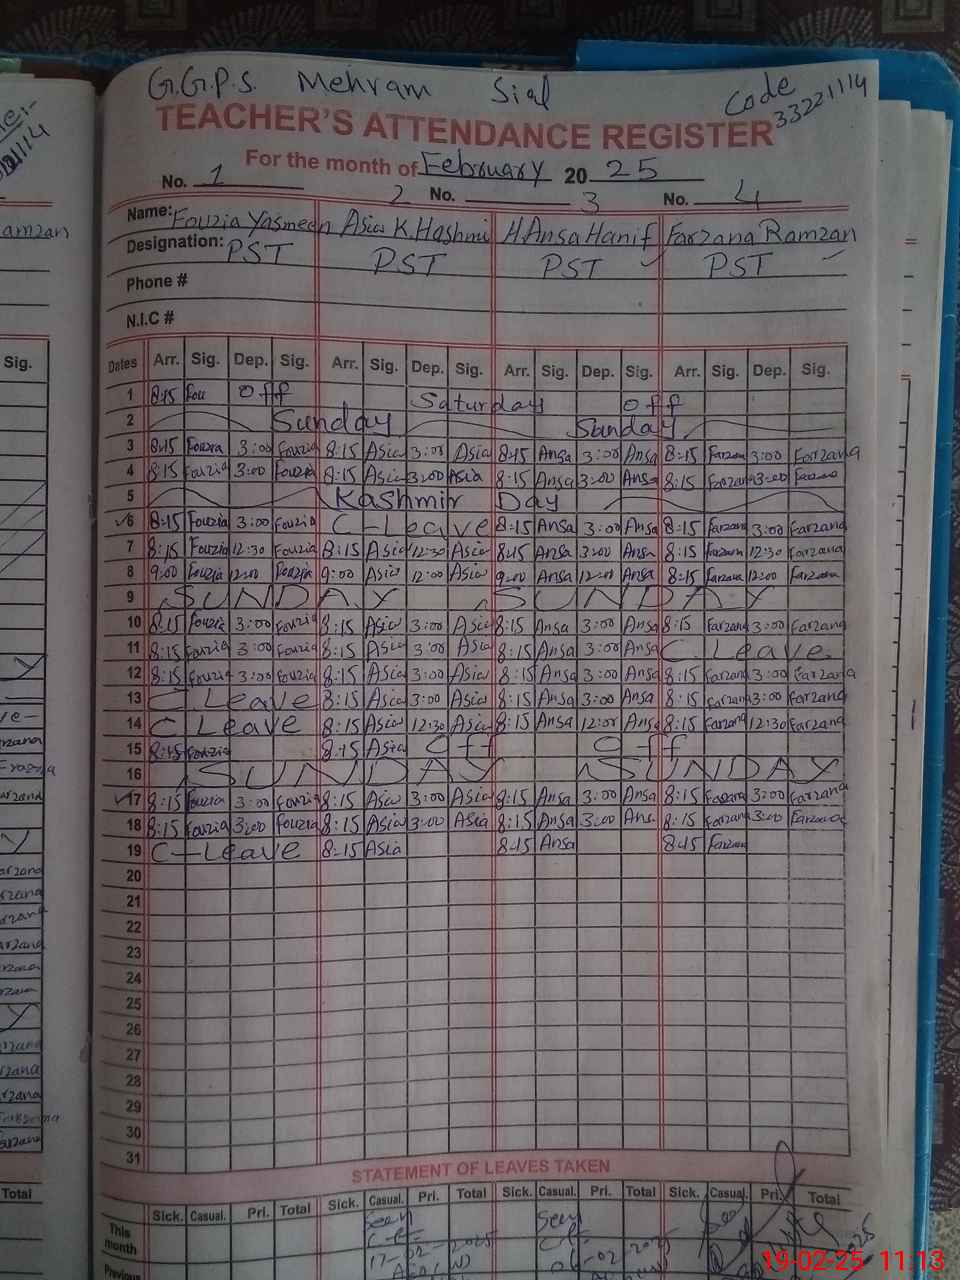 G.G.P.S. Mehram Sial
Code
33221114
TEACHER'S ATTENDANCE REGISTER
For the month of February 20 25
No. 1 2 No. 3 No. 4
Name: Fouzia Yasmeen Asia K.Hashmi H.Ansa Hanif Farzana Ramzan
Designation: PST PST PST PST
Phone #
N.I.C #
Sig.
Dates Arr. Sig. Dep. Sig. Arr. Sig. Dep. Sig. Arr. Sig. Dep. Sig. Arr. Sig. Dep. Sig.
1 8:15 Fou Off Saturday off
2 Sunday Sunday
3 8:15 Fouzia 3:00 Fouzia 8:15 Asia 3:00 Asia 8:15 Ansa 3:00 Ansa 8:15 Farzana 3:00 Farzana
4 8:15 Fouzia 3:00 Fouzia 8:15 Asia 3:00 Asia 8:15 Ansa 3:00 Ansa 8:15 Farzana 3:00
5 Kashmir Day
6 8:15 Fouzia 3:00 Fouzia C-Leave 8:15 Ansa 3:00 Ansa 8:15 Farzana 3:00 Farzana
7 8:15 Fouzia 12:30 Fouzia 8:15 Asia 12:30 Asia 8:15 Ansa 3:00 Ansa 8:15 Farzana 12:30 Farzana
8 9:00 Fouzia 12:00 Fouzia 9:00 Asia 12:00 Asia 9:00 Ansa 12:00 Ansa 8:15 Farzana 12:00 Farzana
9 SUNDAY SUNDAY
10 8:15 Fouzia 3:00 Fouzia 8:15 Asia 3:00 Asia 8:15 Ansa 3:00 Ansa 8:15 Farzana 3:00 Farzana
11 8:15 Fouzia 3:00 Fouzia 8:15 Asia 3:00 Asia 8:15 Ansa 3:00 Ansa C Leave
12 8:15 Fouzia 3:00 Fouzia 8:15 Asia 3:00 Asia 8:15 Ansa 3:00 Ansa 8:15 Farzana 3:00 Farzana
13 C Leave 8:15 Asia 3:00 Asia 8:15 Ansa 3:00 Ansa 8:15 Farzana 3:00 Farzana
14 C Leave 8:15 Asia 12:30 Asia 8:15 Ansa 12:01 Ansa 8:15 Farzana 12:30 Farzana
15 8:15 Fouzia 8:15 Asia Off Off
16 SUNDAY SUNDAY
17 8:15 Fouzia 3:00 Fouzia 8:15 Asia 3:00 Asia 8:15 Ansa 3:00 Ansa 8:15 Farzana 3:00 Farzana
18 8:15 Fouzia 3:00 Fouzia 8:15 Asia 3:00 Asia 8:15 Ansa 3:00 Ans. 8:15 Farzana 3:00 Farzana
19 C-Leave 8:15 Asia 8:15 Ansa 8:15 Farzana
20
21
22
23
24
25
26
27
28
29
30
31
STATEMENT OF LEAVES TAKEN
Total
Sick. Casual. Pri. Total Sick. Casual. Pri. Total Sick. Casual. Pri. Total Sick. Casual. Pri. Total
This month
Seen Seen
17-02-2025
Previous
19-02-25 11:13